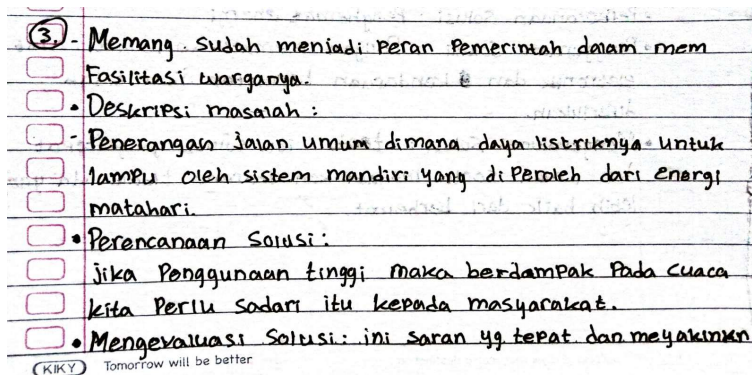 3. - Memang sudah menjadi peran Pemerintah dalam mem
Fasilitasi warganya.
• Deskripsi masalah :
- Penerangan Jalan umum dimana daya listriknya untuk
lampu oleh sistem mandiri yang di Peroleh dari energi
matahari.
• Perencanaan Solusi :
jika Penggunaan tinggi maka berdampak Pada cuaca
kita Perlu Sadari itu kepada masyarakat.
• Mengevaluasi Solusi : ini saran yg tepat dan meyakinkn
KIKY Tomorrow will be better